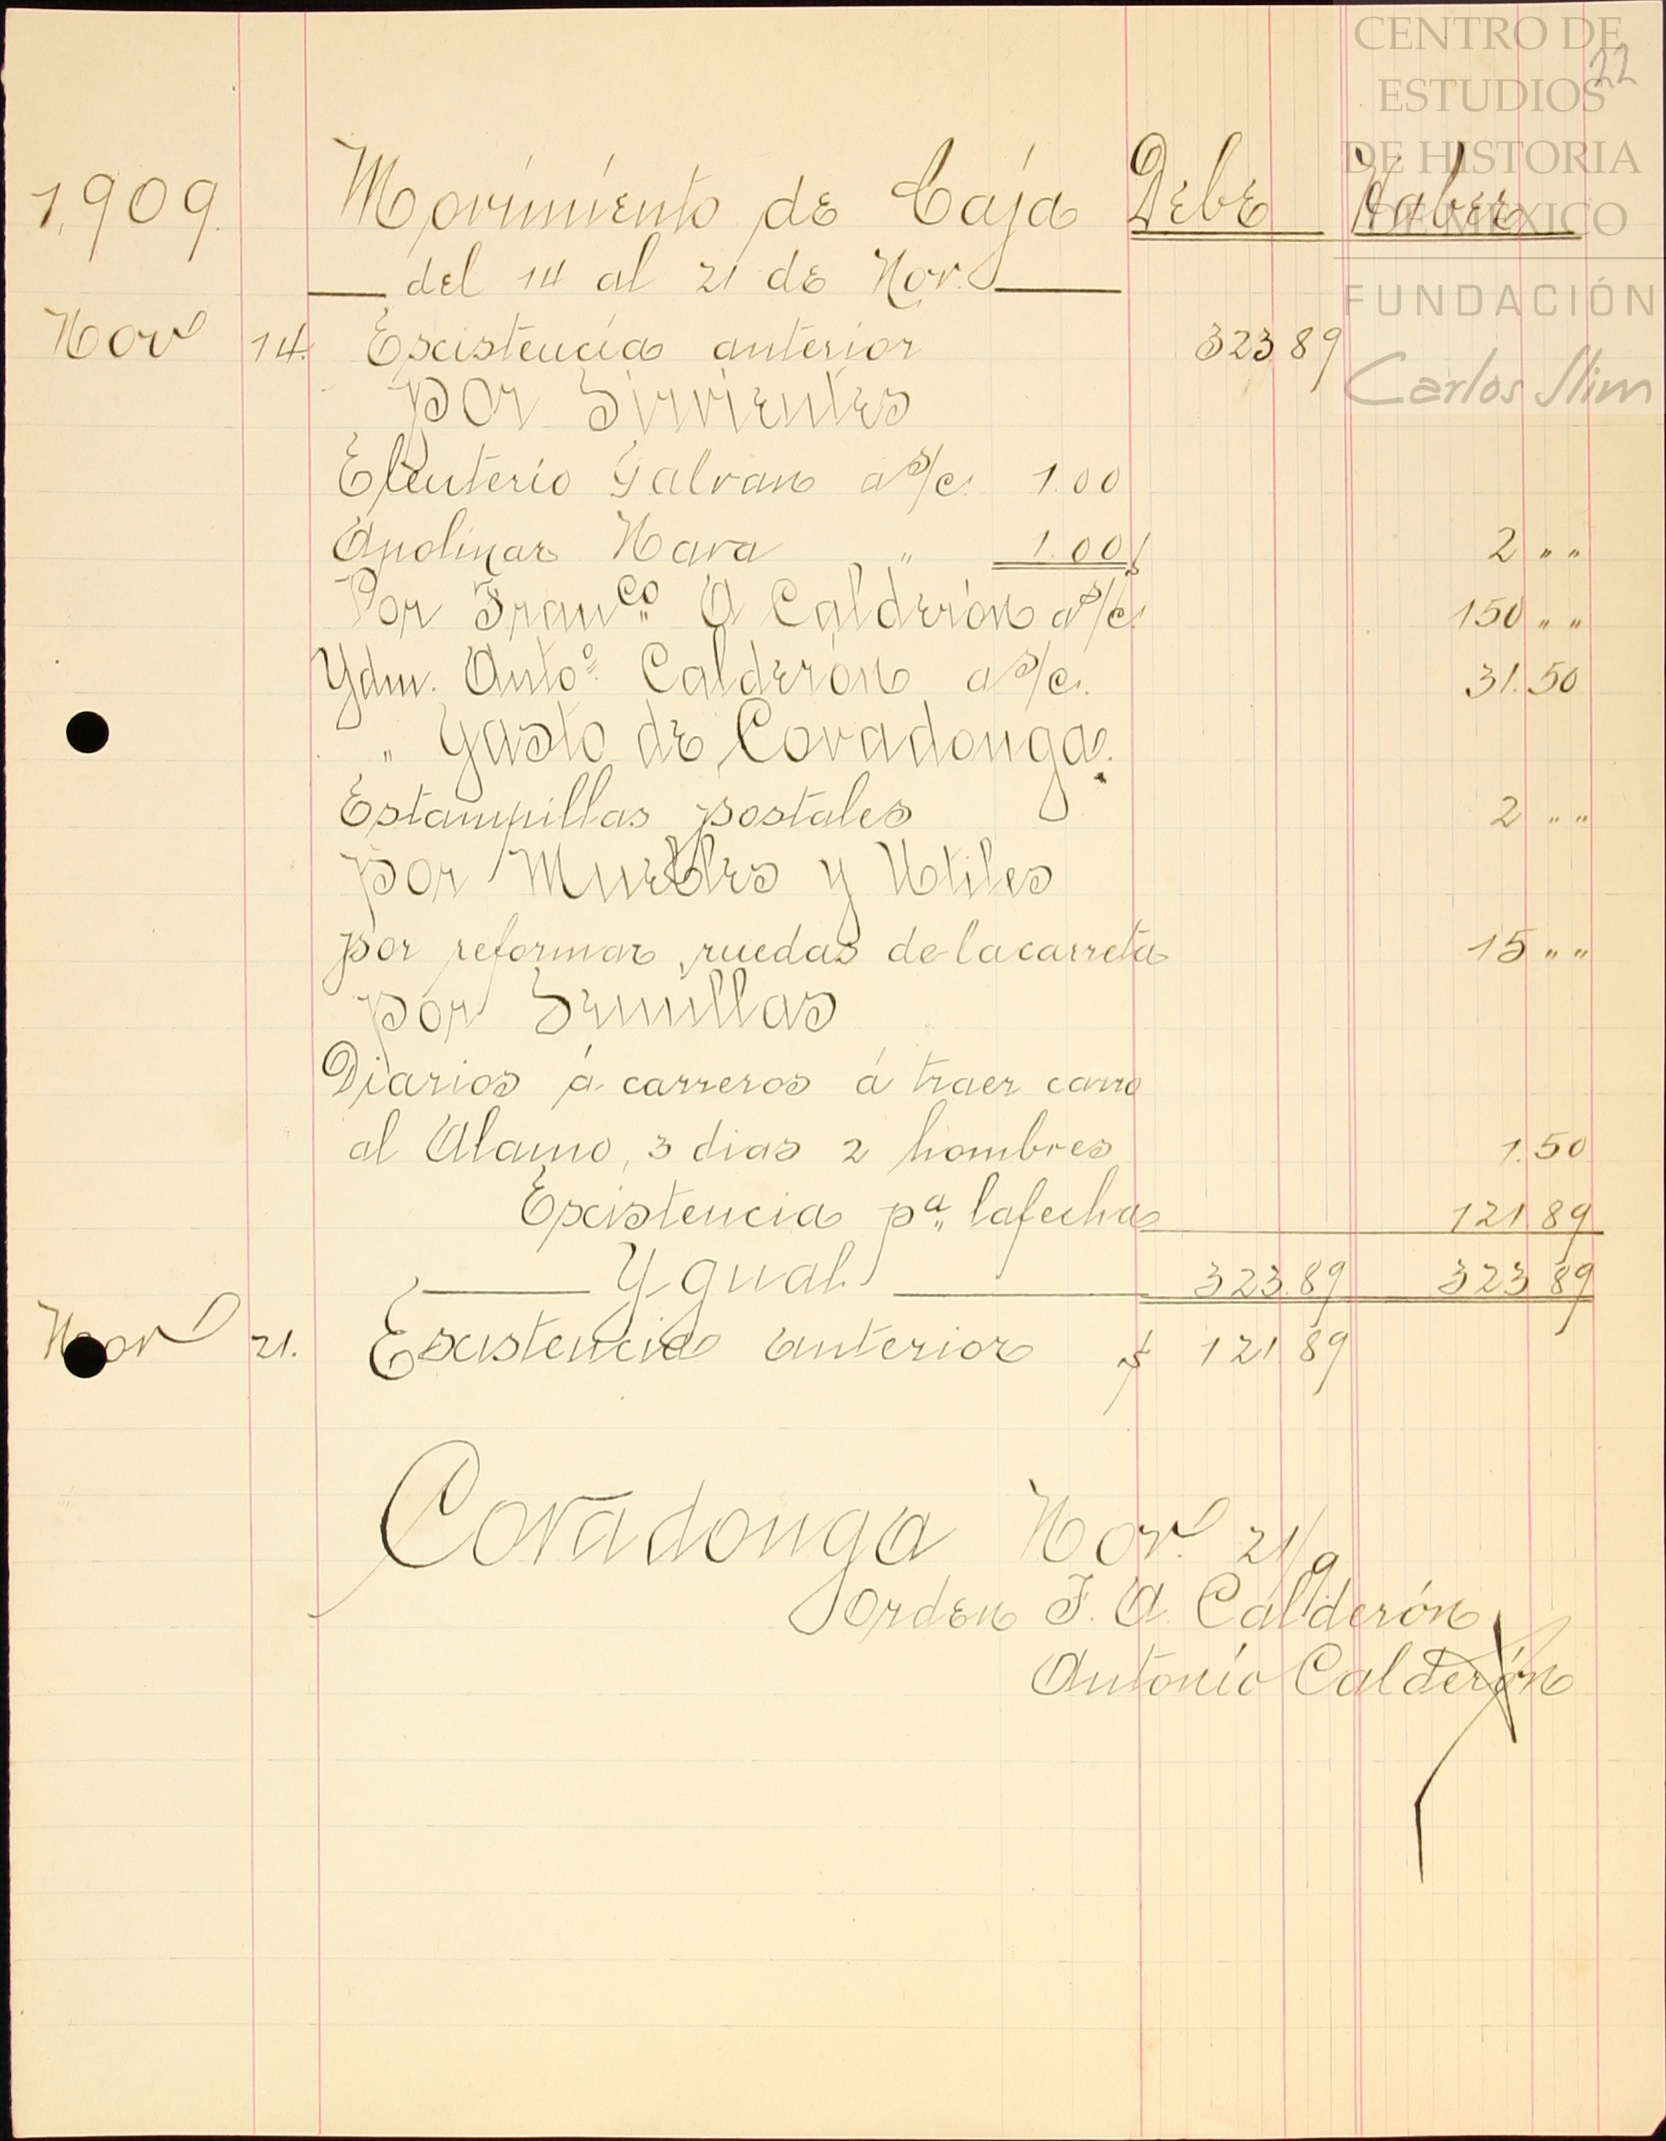 CENTRO DE
ESTUDIOS
DE HISTORIA
DE MÉXICO
FUNDACIÓN
Carlos Slim
22
1,909. Movimiento de Caja Debe Haber
del 14 al 21 de Nov.
Nov 14. Excistencia anterior 323 89
por Sirvientes
Eleuterio Galvan a s/c. 1.00
Apolinar Nava " 1.00 $ 2 " "
Por Franco. A Calderón a s/c. 150 " "
Ydm. Antoº Calderón a s/c. 31.50
" Gasto de Covadonga.
Estampillas postales 2 " "
por Muebles y Utiles
por reformar ruedas de la carreta 15 " "
por Semillas
Diarios á carreros á traer carro
al Alamo, 3 dias 2 hombres 1.50
Excistencia pª la fecha 121 89
Ygual 323.89 323 89
Nov 21. Excistencia anterior $ 121 89
Covadonga Nov. 21/9
Orden F. A. Calderón
Antonio Calderón